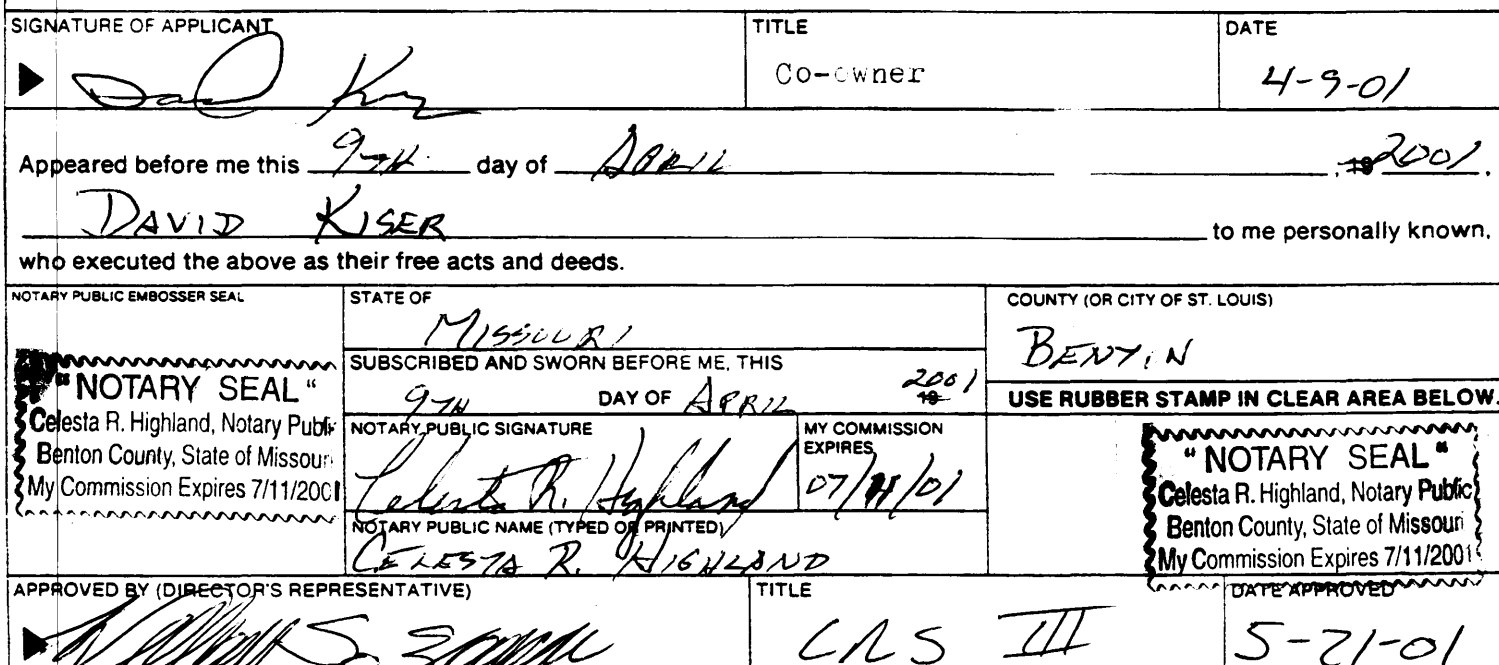 SIGNATURE OF APPLICANT TITLE DATE
David Co-owner 4-9-01
Appeared before me this 9TH day of APRIL , 19 2001.
DAVID KISER to me personally known,
who executed the above as their free acts and deeds.
NOTARY PUBLIC EMBOSSER SEAL
STATE OF
MISSOURI
COUNTY (OR CITY OF ST. LOUIS)
BENTON
"NOTARY SEAL"
Celesta R. Highland, Notary Public
Benton County, State of Missouri
My Commission Expires 7/11/2001
SUBSCRIBED AND SWORN BEFORE ME, THIS
9TH DAY OF APRIL 19 2001
USE RUBBER STAMP IN CLEAR AREA BELOW.
NOTARY PUBLIC SIGNATURE
Celesta R. Highland
MY COMMISSION
EXPIRES
07/11/01
NOTARY PUBLIC NAME (TYPED OR PRINTED)
CELESTA R. HIGHLAND
"NOTARY SEAL"
Celesta R. Highland, Notary Public
Benton County, State of Missouri
My Commission Expires 7/11/2001
APPROVED BY (DIRECTOR'S REPRESENTATIVE) TITLE DATE APPROVED
III 5-21-01